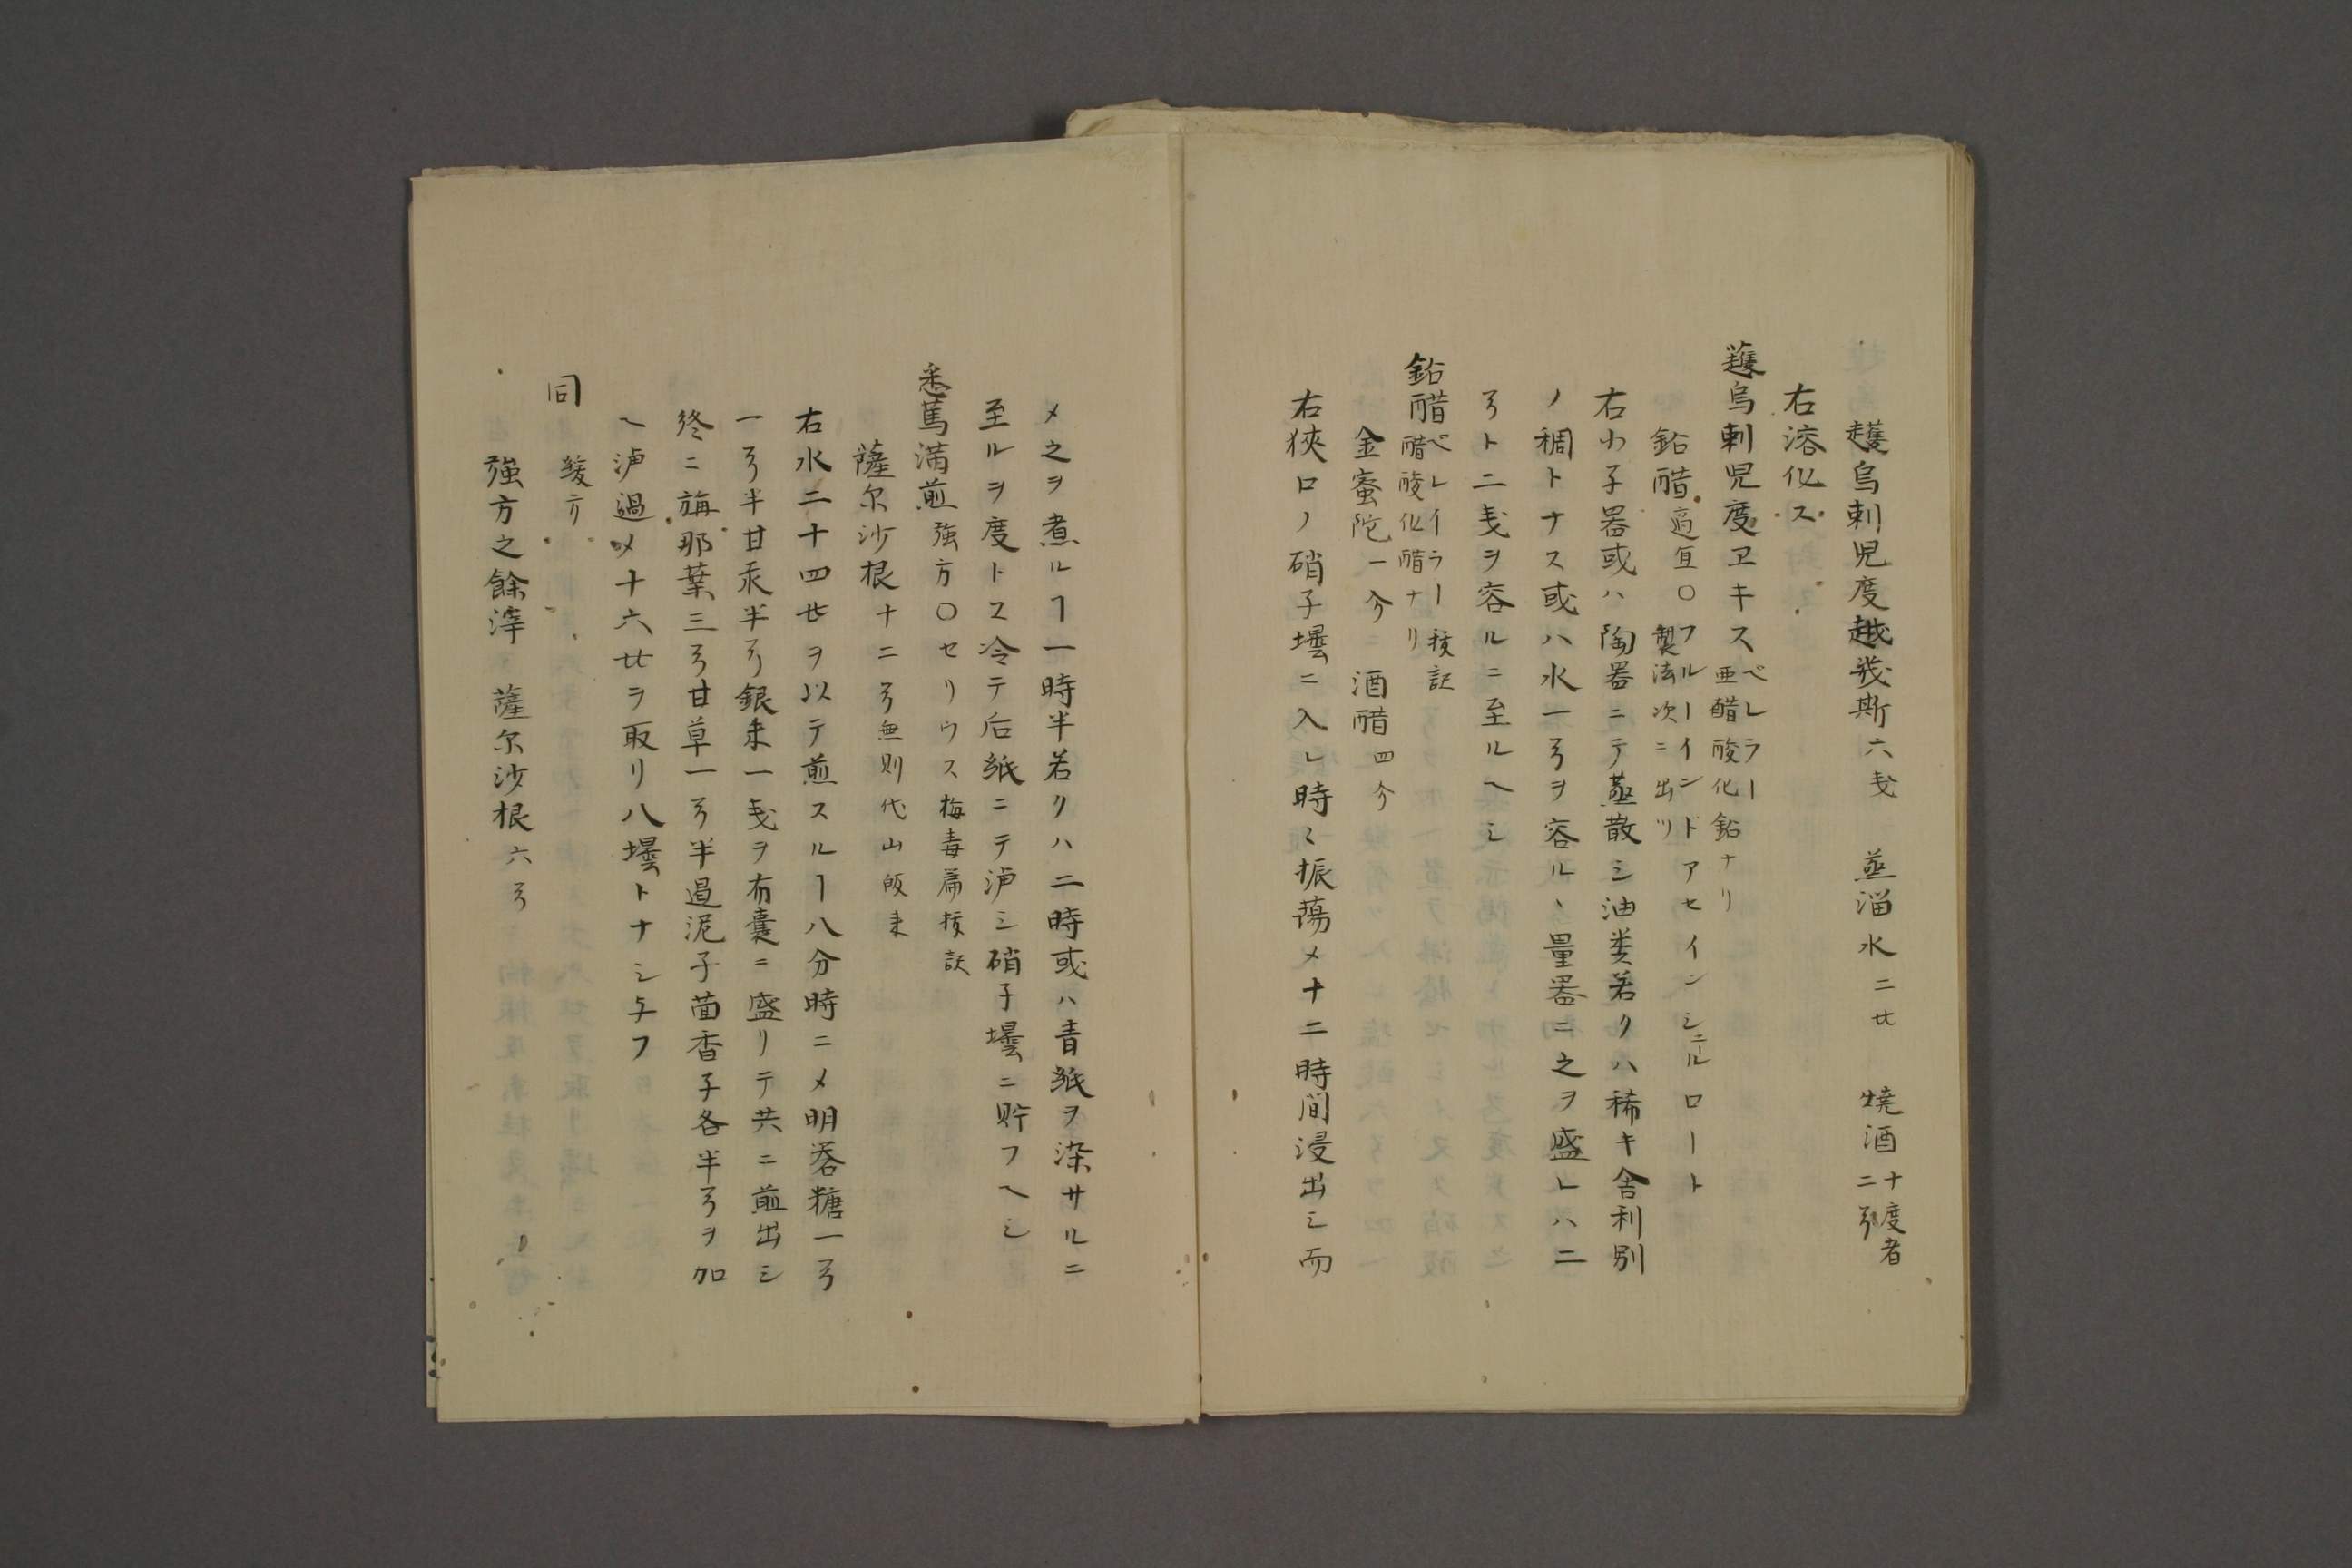 謢烏刺児度越幾斯六戔　蒸溜水二廿　焼酒十度者二㕝
右溶化ス
謢烏刺児度ヱキスベレラー亜醋酸化鉛ナリ
鉛醋適宜〇フルーインドアセインシニールロート製法次ニ出ツ
右カ子器或ハ陶器ニテ蒸散シ油类若クハ稀キ舎利別
ノ稠トナス或ハ水一㕝ヲ容ルヽ量器ニ之ヲ盛レハ二
㕝ト二戔ヲ容ルニ至ルヘシ
鉛醋ベレイラー按註醋酸化醋ナリ
金蜜陀一分　酒醋四分
右狹口ノ硝子壜ニ入レ時〻振蕩メ十二時間浸出シ而
メ之ヲ煮ルヿ一時半若クハ二時或ハ青紙ヲ染サルニ
至ルヲ度トス冷テ后紙ニテ泸シ硝子壜ニ貯フヘシ
悉篤満煎強方〇セリウス梅毒篇按註
薩尔沙根十二㕝無則代山皈来
右水二十四廿ヲ以テ煎スルヿ八分時ニメ明礬糖一㕝
一㕝半甘汞半㕝銀朱一戔ヲ布嚢ニ盛リテ共ニ煎出シ
終ニ旃那葉三㕝甘草一㕝半過泥子茴香子各半㕝ヲ加
ヘ泸過メ十六廿ヲ取リ八壜トナシ与フ
同　緩方
強方之餘滓　薩尔沙根六㕝